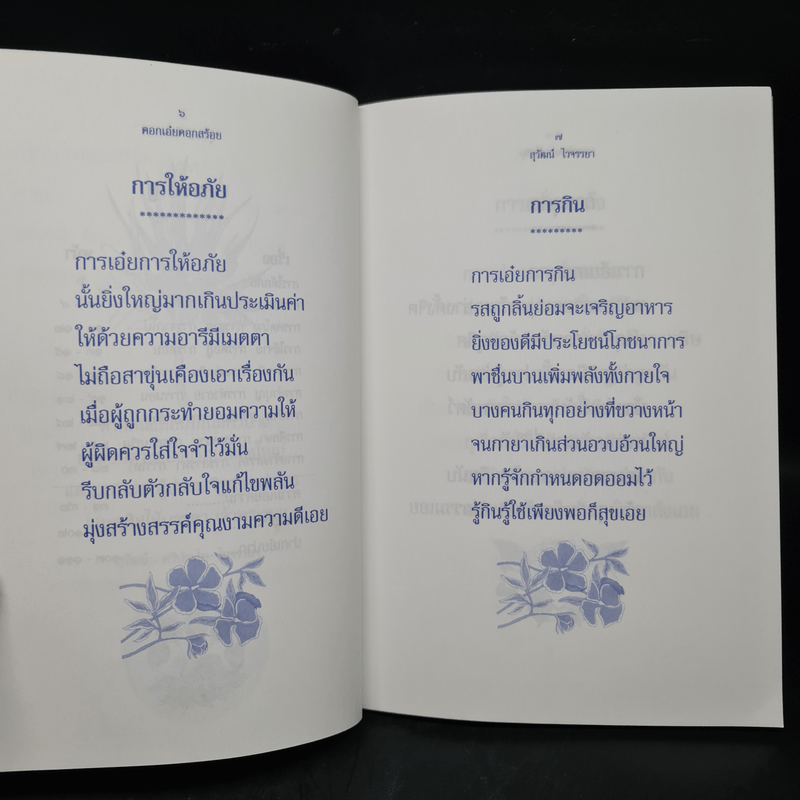 ๖
ดอกเอ๋ยดอกสร้อย
การให้อภัย
การเอ๋ยการให้อภัย
นั้นยิ่งใหญ่มากเกินประเมินค่า
ให้ด้วยความอารีมีเมตตา
ไม่ถือสาขุ่นเคืองเอาเรื่องกัน
เมื่อผู้ถูกกระทำยอมความให้
ผู้ผิดควรใส่ใจจำไว้มั่น
รีบกลับตัวกลับใจแก้ไขพลัน
มุ่งสร้างสรรค์คุณงามความดีเอย
๗
สุวัฒน์ ไวจรรยา
การกิน
การเอ๋ยการกิน
รสถูกลิ้นย่อมจะเจริญอาหาร
ยิ่งของดีมีประโยชน์โภชนาการ
พาชื่นบานเพิ่มพลังทั้งกายใจ
บางคนกินทุกอย่างที่ขวางหน้า
จนกายาเกินส่วนอวบอ้วนใหญ่
หากรู้จักกำหนดอดออมไว้
รู้กินรู้ใช้เพียงพอก็สุขเอย